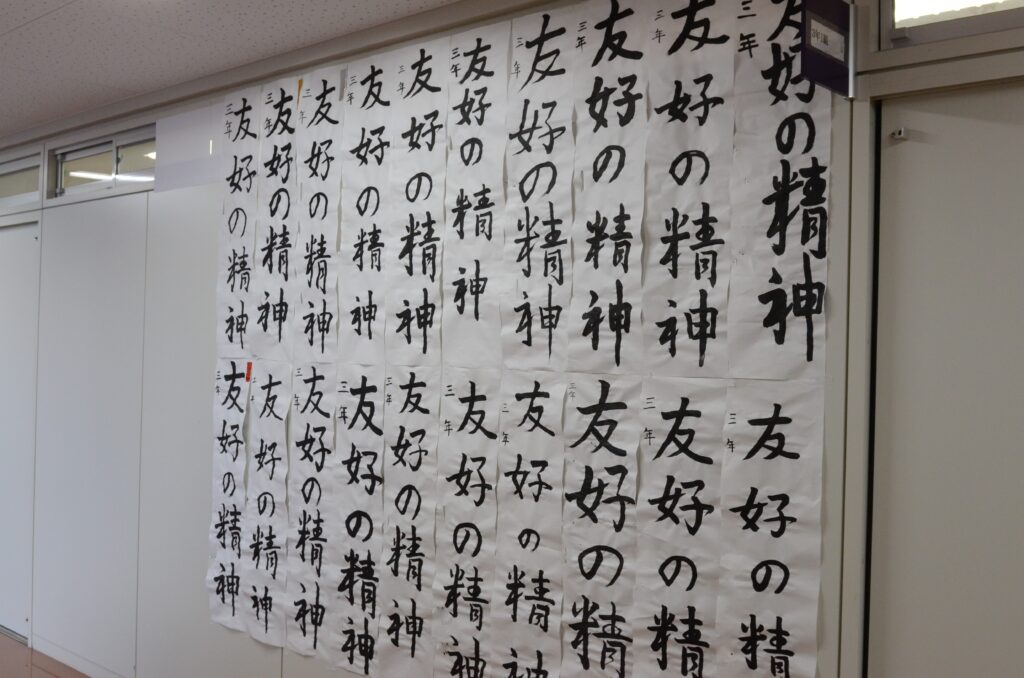 友好の精神
三年
友好の精神
三年
友好の精神
三年
友好の精神
三年
友好の精神
三年
友好の精神
三年
友好の精神
三年
友好の精神
三年
友好の精神
三年
友好の精神
三年
友好の精
三年
友好の精
三年
友好の精
三年
友好の精神
三年
友好の精神
三年
友好の精神
三年
友好の精神
三年
友好の精神
三年
友好の精神
友好の精神
三年